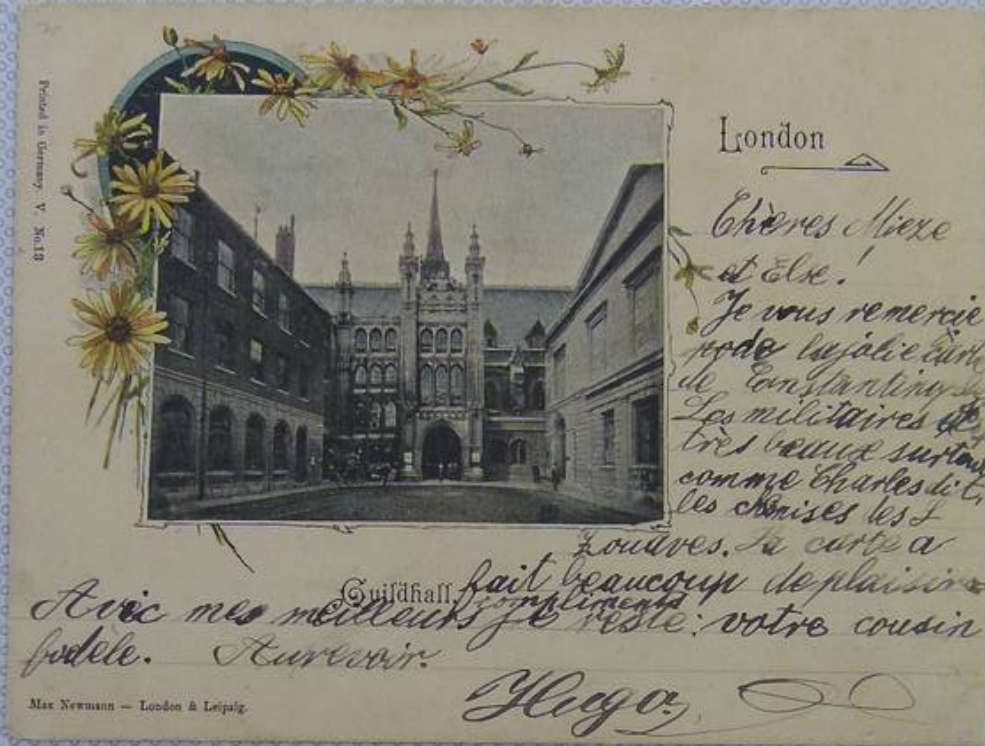 Printed in Germany. V. No. 18
London
Chères Mieze
et Else!
Je vous remercie
la jolie
de
Les militaires
très beaux surtout
comme Charles dit,
les chmises les
Zouaves. La carte a
fait beaucoup de plaisir
Guildhall.
Avec mes meilleurs compliments je reste: votre cousin
fidèle. Aurevoir.
Hugo
Max Newmann — London & Leipzig.